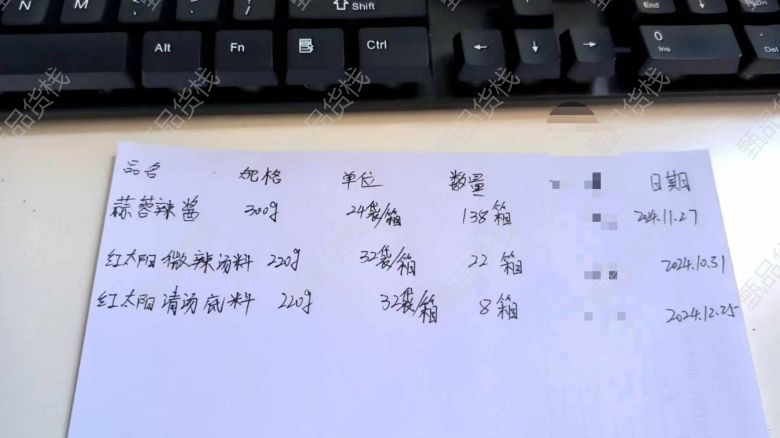 N M
Shift
Alt Fn Ctrl ← ↓ → 0 Ins
品名 规格 单位 数量 日期
蒜蓉辣酱 300g 24袋/箱 138箱 2024.11.27
红太阳微辣汤料 220g 32袋/箱 22箱 2024.10.31
红太阳清汤底料 220g 32袋/箱 8箱 2024.12.25
甄品货栈